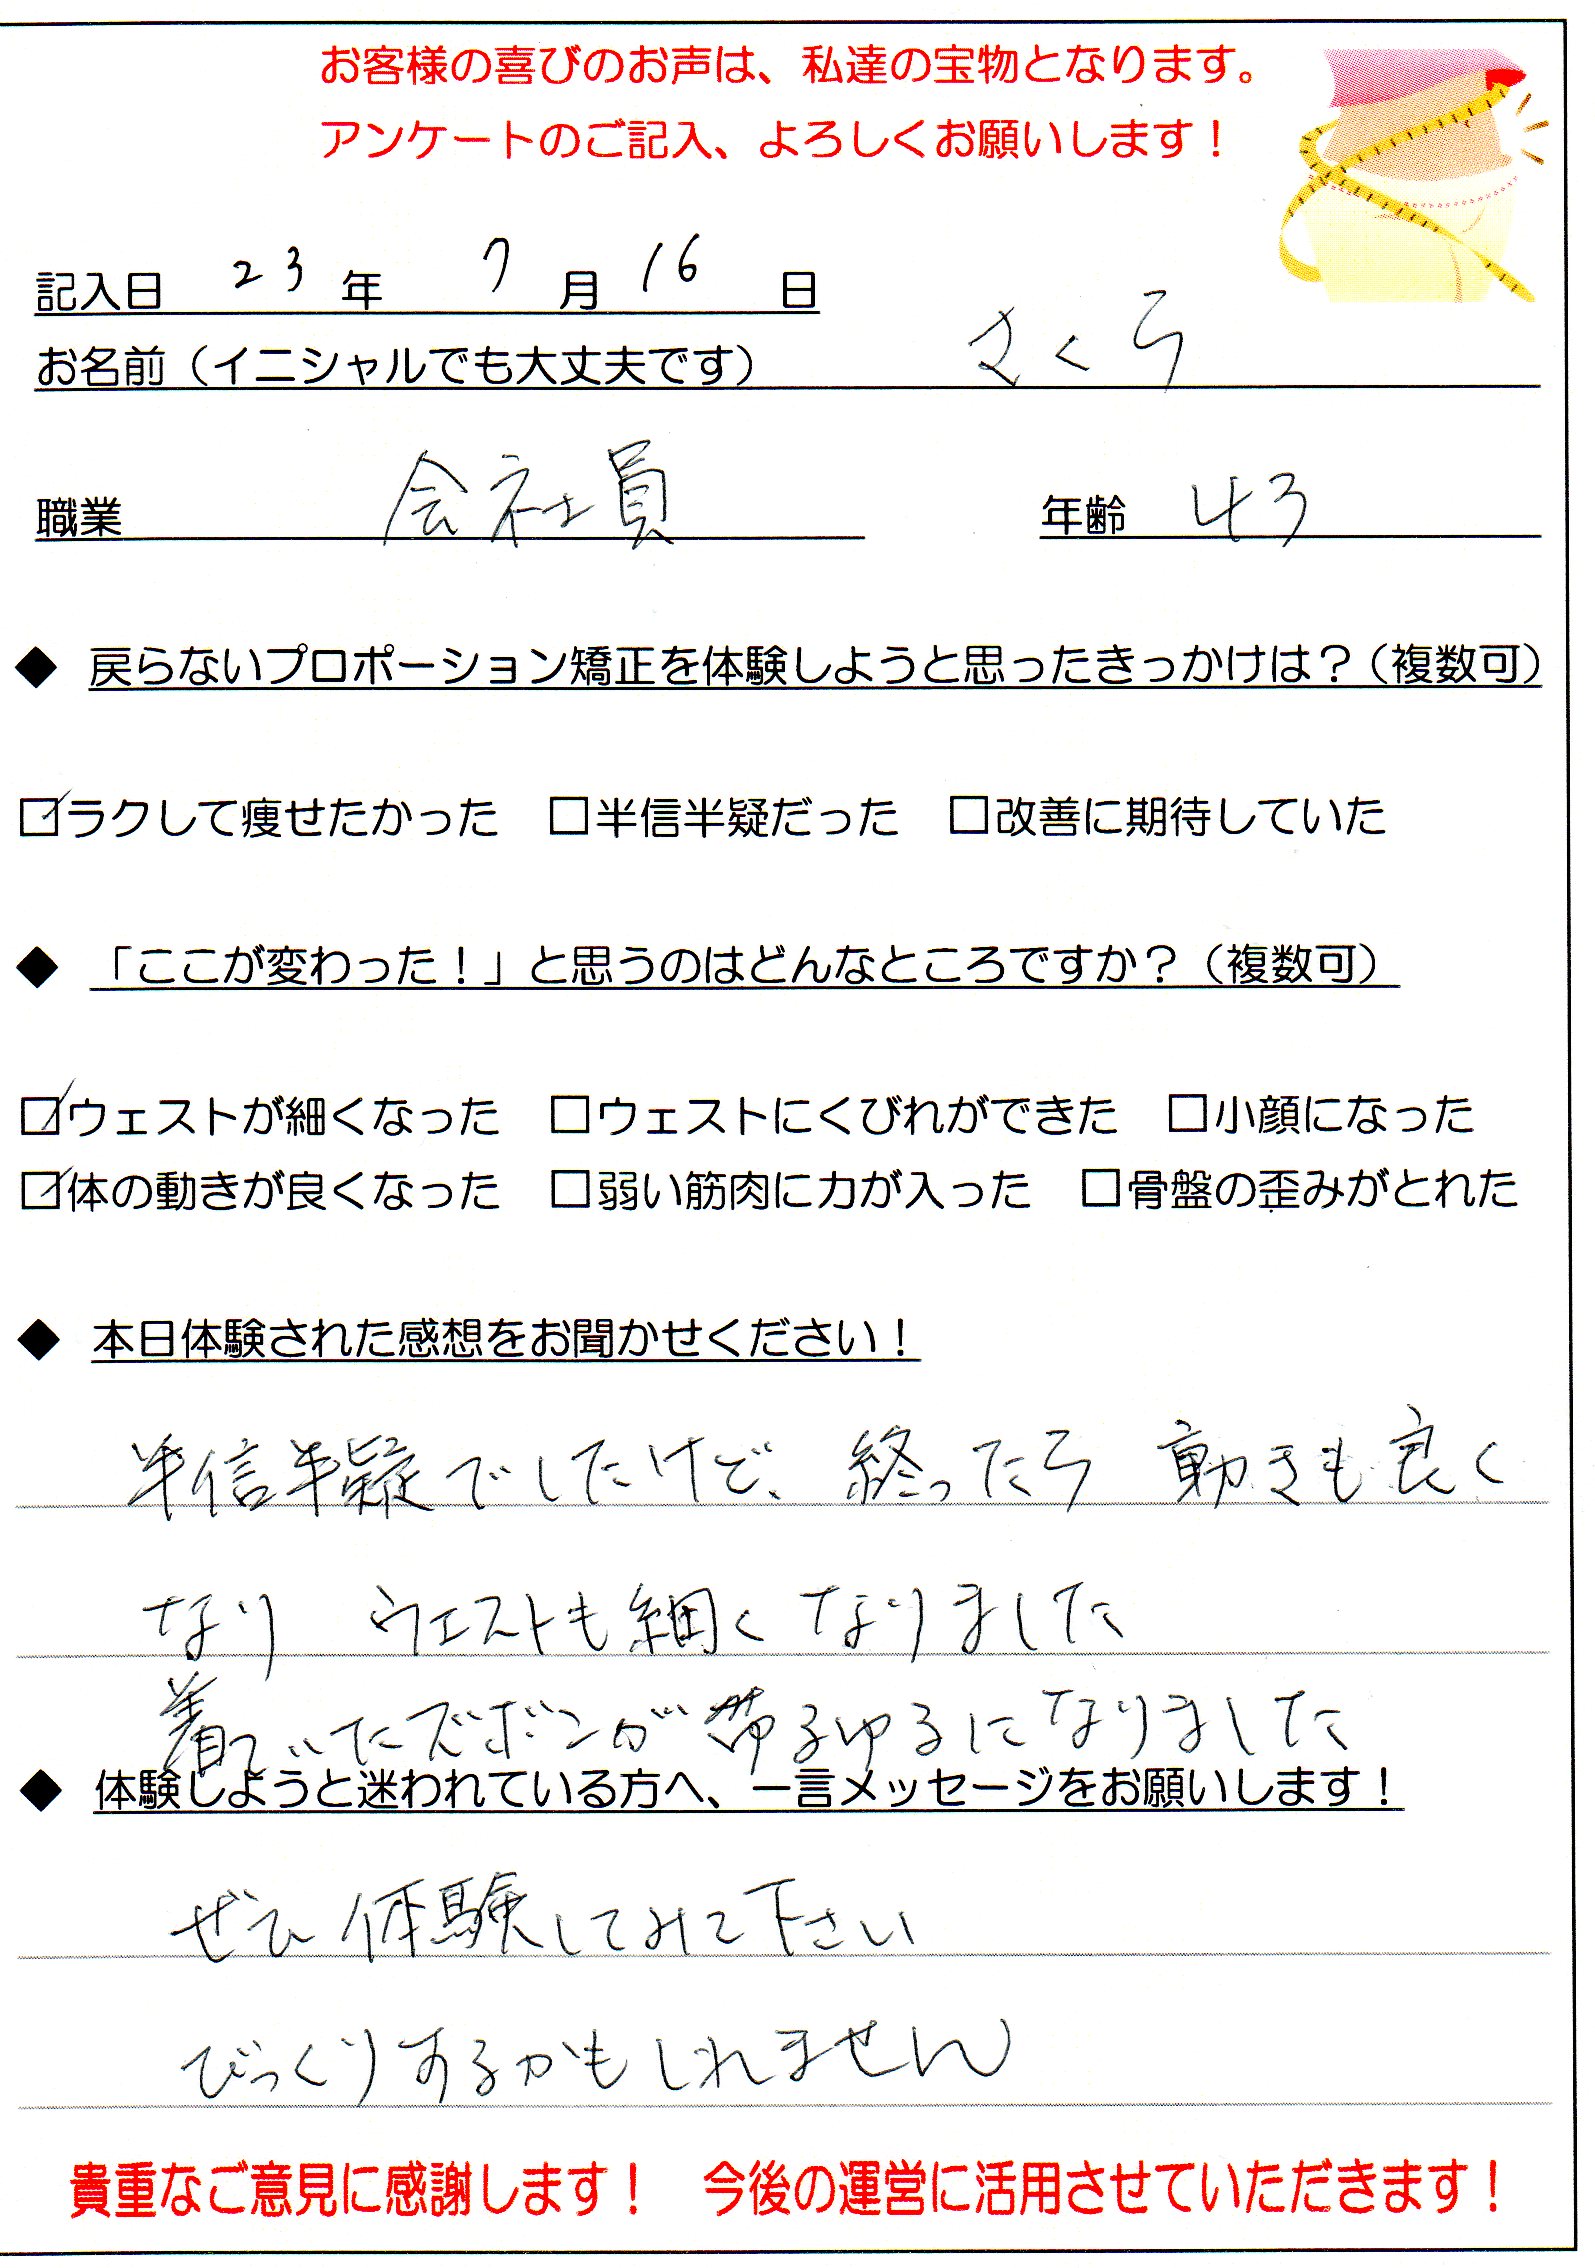 お客様の喜びのお声は、私達の宝物となります。
アンケートのご記入、よろしくお願いします！
記入日 23 年 7 月 16 日
お名前（イニシャルでも大丈夫です） さくら
職業 会社員 年齢 43
◆ 戻らないプロポーション矯正を体験しようと思ったきっかけは？（複数可）
☑ラクして痩せたかった □半信半疑だった □改善に期待していた
◆ 「ここが変わった！」と思うのはどんなところですか？（複数可）
☑ウェストが細くなった □ウェストにくびれができた □小顔になった
☑体の動きが良くなった □弱い筋肉に力が入った □骨盤の歪みがとれた
◆ 本日体験された感想をお聞かせください！
半信半疑でしたけど、終ったら 動きも良く
なり ウエストも細くなりました
着ていたズボンが ゆるゆるになりました
◆ 体験しようと迷われている方へ、一言メッセージをお願いします！
ぜひ 体験してみて下さい
びっくりするかもしれません
貴重なご意見に感謝します！ 今後の運営に活用させていただきます！